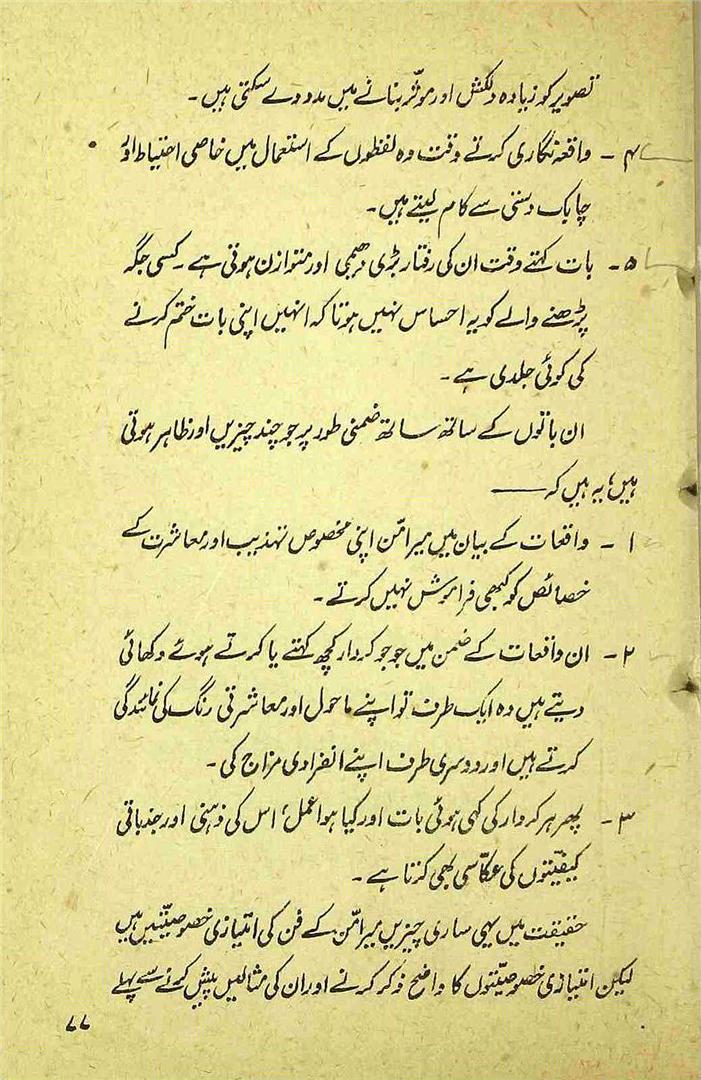 تصویر کو زیادہ دلکش اور موثّر بنانے میں مدد دے سکتی ہیں۔
۴ - واقعہ نگاری کرتے وقت وہ لفظوں کے استعمال میں خاصی احتیاط اور
چابک دستی سے کام لیتے ہیں۔
۵ - بات کہتے وقت ان کی رفتار بڑی دھیمی اور متوازن ہوتی ہے۔ کسی جگہ
پڑھنے والے کو یہ احساس نہیں ہوتا کہ انہیں اپنی بات ختم کرنے
کی کوئی جلدی ہے۔
ان باتوں کے ساتھ ساتھ ضمنی طور پر جو چند چیزیں اور ظاہر ہوتی
ہیں؛ یہ ہیں کہ ——
۱ - واقعات کے بیان میں میر امّن اپنی مخصوص تہذیب اور معاشرت کے
خصائص کو کبھی فراموش نہیں کرتے۔
۲ - ان واقعات کے ضمن میں جو جو کردار کچھ کہتے یا کرتے ہوئے دکھائی
دیتے ہیں وہ ایک طرف تو اپنے ماحول اور معاشرتی رنگ کی نمائندگی
کرتے ہیں اور دوسری طرف اپنے انفرادی مزاج کی۔
۳ - پھر ہر کردار کی کہی ہوئی بات اور کیا ہوا عمل؛ اس کی ذہنی اور جذباتی
کیفیّتوں کی عکاّسی بھی کرتا ہے۔
حقیقت میں یہی ساری چیزیں میر امّن کے فن کی امتیازی خصوصیّتیں ہیں
لیکن امتیازی خصوصیّتوں کا واضح ذکر کرنے اور ان کی مثالیں پیش کرنے سے پہلے
۷۷